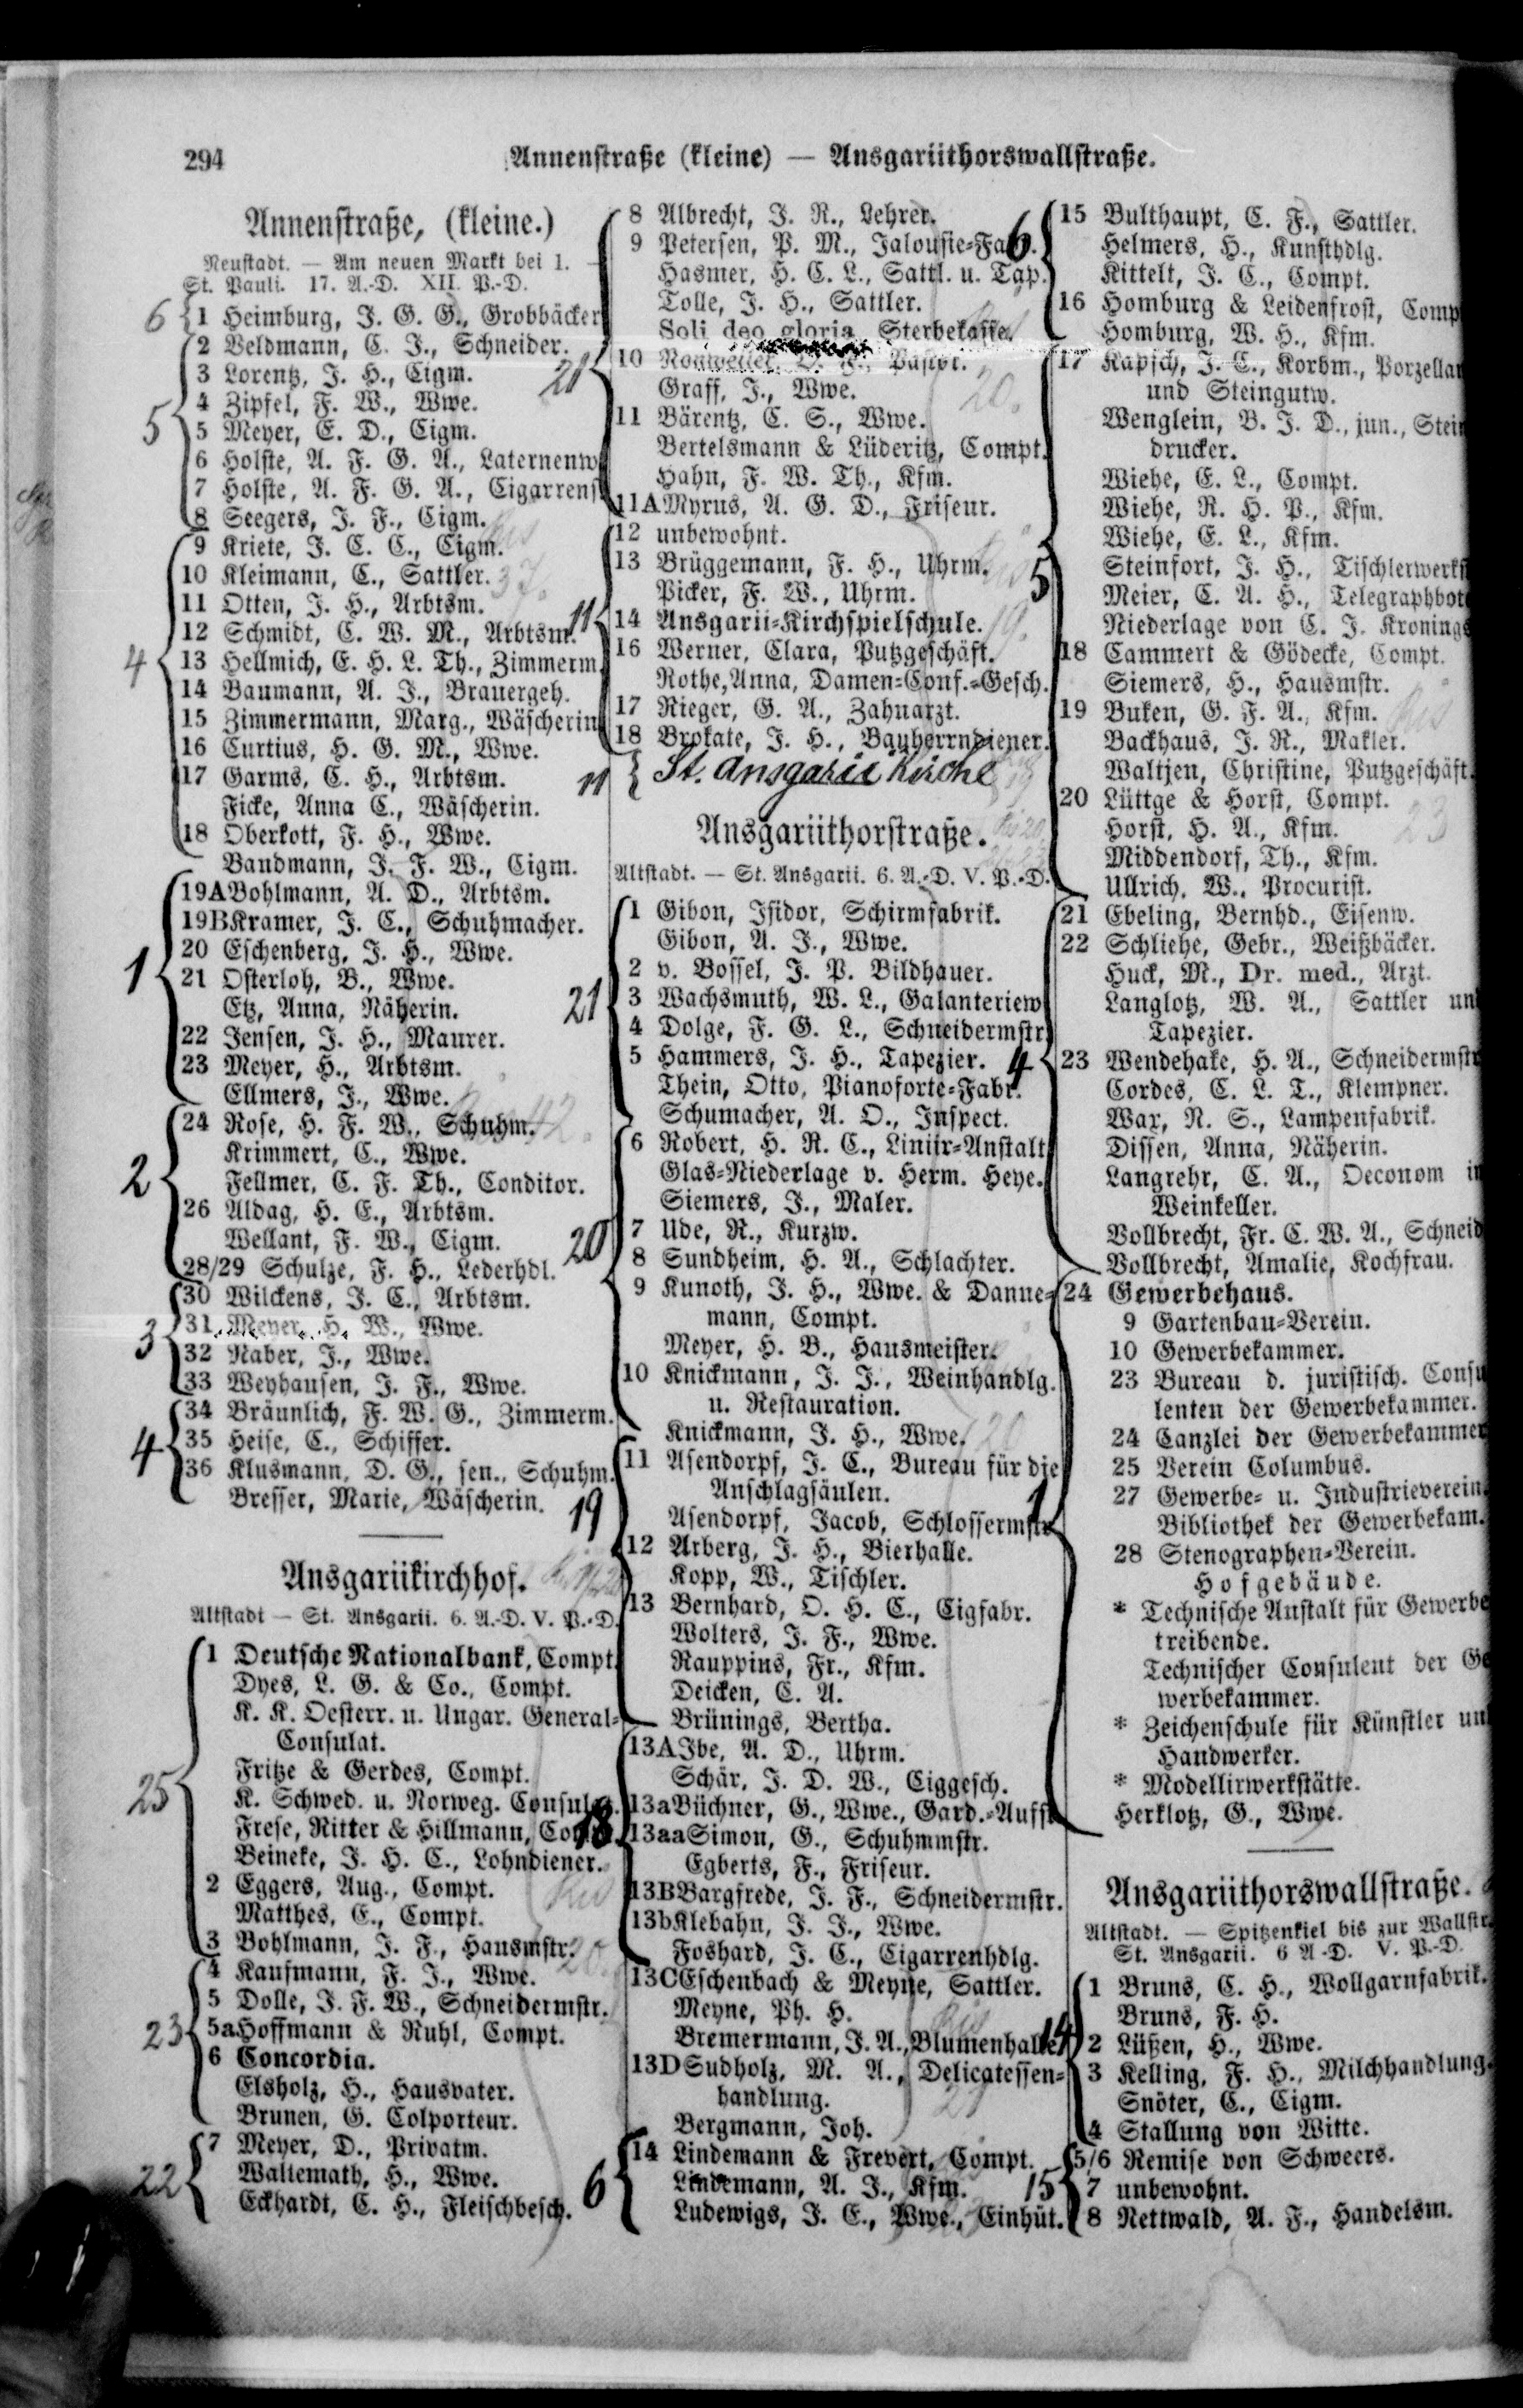 294
Annenstraße (kleine) — Ansgariithorswallstraße.
Annenstraße, (kleine.)
Neustadt. — Am neuen Markt bei 1. —
St. Pauli. 17. A.-D. XII. P.-D.
6
1 Heimburg, J. G. G., Grobbäcker
2 Veldmann, C. J., Schneider.
3 Lorentz, J. H., Cigm.
4 Zipfel, F. W., Wwe.
5
5 Meyer, E. D., Cigm.
6 Holste, A. F. G. A., Laternenw
7 Holste, A. F. G. A., Cigarrens
8 Seegers, J. F., Cigm.
9 Kriete, J. C. C., Cigm.
10 Kleimann, C., Sattler.
37.
11 Otten, J. H., Arbtsm.
12 Schmidt, C. W. M., Arbtsm.
4
13 Hellmich, E. H. L. Th., Zimmerm.
14 Baumann, A. J., Brauergeh.
15 Zimmermann, Marg., Wäscherin
16 Curtius, H. G. M., Wwe.
17 Garms, C. H., Arbtsm.
Ficke, Anna C., Wäscherin.
18 Oberkott, F. H., Wwe.
Bandmann, J. F. W., Cigm.
19A Bohlmann, A. D., Arbtsm.
19B Kramer, J. C., Schuhmacher.
20 Eschenberg, J. H., Wwe.
1
21 Osterloh, B., Wwe.
Etz, Anna, Näherin.
22 Jensen, J. H., Maurer.
23 Meyer, H., Arbtsm.
Ellmers, J., Wwe.
24 Rose, H. F. W., Schuhm.
42.
Krimmert, C., Wwe.
2
Fellmer, C. F. Th., Conditor.
26 Aldag, H. E., Arbtsm.
Wellant, F. W., Cigm.
28/29 Schulze, F. H., Lederhdl.
30 Wilckens, J. C., Arbtsm.
3
31 Meyer, H. W., Wwe.
32 Naber, J., Wwe.
33 Weyhausen, J. F., Wwe.
34 Bräunlich, F. W. G., Zimmerm.
4
35 Heise, C., Schiffer.
36 Klusmann, D. G., sen., Schuhm.
Bresser, Marie, Wäscherin.
Ansgariikirchhof.
Altstadt — St. Ansgarii. 6. A.-D. V. P.-D.
1 Deutsche Nationalbank, Compt.
Dyes, L. G. & Co., Compt.
K. K. Oesterr. u. Ungar. General-
Consulat.
Fritze & Gerdes, Compt.
25
K. Schwed. u. Norweg. Consulat.
Frese, Ritter & Hillmann, Co
Beineke, J. H. C., Lohndiener.
2 Eggers, Aug., Compt.
Matthes, E., Compt.
3 Bohlmann, J. F., Hausmstr.
4 Kaufmann, F. J., Wwe.
5 Dolle, J. F. W., Schneidermstr.
23
5a Hoffmann & Ruhl, Compt.
6 Concordia.
Elsholz, H., Hausvater.
Brunen, G. Colporteur.
7 Meyer, D., Privatm.
22
Waltemath, H., Wwe.
Eckhardt, C. H., Fleischbesch.
8 Albrecht, J. R., Lehrer.
9 Petersen, P. M., Jalousie-Fab.
Hasmer, H. C. L., Sattl. u. Tap.
Tolle, J. H., Sattler.
Soli deo gloria, Sterbekasse.
21
10 Pastor.
Graff, J., Wwe.
20.
11 Bärentz, C. S., Wwe.
Bertelsmann & Lüderitz, Compt.
Hahn, F. W. Th., Kfm.
11A Myrus, A. G. D., Friseur.
12 unbewohnt.
13 Brüggemann, F. H., Uhrm.
Picker, F. W., Uhrm.
11
14 Ansgarii-Kirchspielschule.
19.
16 Werner, Clara, Putzgeschäft.
Rothe, Anna, Damen-Conf.-Gesch.
17 Rieger, G. A., Zahnarzt.
18 Brokate, J. H., Bauherrndiener.
11 St. Ansgarii Kirche
Ansgariithorstraße.
Altstadt. — St. Ansgarii. 6. A.-D. V. P.-D.
1 Gibon, Isidor, Schirmfabrik.
Gibon, A. J., Wwe.
2 v. Bossel, J. P. Bildhauer.
21
3 Wachsmuth, W. L., Galanteriew
4 Dolge, F. G. L., Schneidermstr
5 Hammers, J. H., Tapezier.
Thein, Otto, Pianoforte-Fabr.
Schumacher, A. O., Inspect.
6 Robert, H. R. C., Liniir-Anstalt
Glas-Niederlage v. Herm. Heye.
Siemers, J., Maler.
7 Ude, R., Kurzw.
20
8 Sundheim, H. A., Schlachter.
9 Kunoth, J. H., Wwe. & Danne-
mann, Compt.
Meyer, H. B., Hausmeister.
10 Knickmann, J. J., Weinhandlg.
u. Restauration.
Knickmann, J. H., Wwe.
20
11 Asendorpf, J. C., Bureau für die
Anschlagsäulen.
19
Asendorpf, Jacob, Schlossermstr
12 Arberg, J. H., Bierhalle.
Kopp, W., Tischler.
13 Bernhard, O. H. C., Cigfabr.
Wolters, J. F., Wwe.
Rauppius, Fr., Kfm.
Deicken, C. A.
Brünings, Bertha.
13A Ibe, A. D., Uhrm.
Schär, J. D. W., Ciggesch.
13a Büchner, G., Wwe., Gard.-Auffs
18
13aa Simon, G., Schuhmmstr.
Egberts, F., Friseur.
13B Bargfrede, J. F., Schneidermstr.
13b Klebahn, J. J., Wwe.
Foshard, J. C., Cigarrenhdlg.
13C Eschenbach & Meyne, Sattler.
Meyne, Ph. H.
Bremermann, J. A., Blumenhalle
13D Sudholz, M. A., Delicatessen-
handlung.
Bergmann, Joh.
14 Lindemann & Frevert, Compt.
6
Lindemann, A. J., Kfm.
Ludewigs, J. E., Wwe., Einhüt.
6
15 Bulthaupt, C. F., Sattler.
Helmers, H., Kunsthdlg.
Kittelt, J. C., Compt.
16 Homburg & Leidenfrost, Comp
Homburg, W. H., Kfm.
17 Kapsch, J. C., Korbm., Porzellan
und Steingutw.
Wenglein, B. J. D., jun., Stein
drucker.
Wiehe, E. L., Compt.
Wiehe, R. H. P., Kfm.
Wiehe, E. L., Kfm.
5
Steinfort, J. H., Tischlerwerkst
Meier, C. A. H., Telegraphbot
Niederlage von C. J. Kronings
18 Cammert & Gödecke, Compt.
Siemers, H., Hausmstr.
19 Buken, G. F. A., Kfm.
Backhaus, J. R., Makler.
Waltjen, Christine, Putzgeschäft.
20 Lüttge & Horst, Compt.
Horst, H. A., Kfm.
23
Middendorf, Th., Kfm.
Ullrich, W., Procurist.
21 Ebeling, Bernhd., Eisenw.
22 Schliehe, Gebr., Weißbäcker.
Huck, M., Dr. med., Arzt.
Langlotz, W. A., Sattler un
Tapezier.
4
23 Wendehake, H. A., Schneidermstr
Cordes, C. L. T., Klempner.
Wax, N. S., Lampenfabrik.
Dissen, Anna, Näherin.
Langrehr, C. A., Oeconom i
Weinkeller.
Vollbrecht, Fr. C. W. A., Schneid
Vollbrecht, Amalie, Kochfrau.
24 Gewerbehaus.
9 Gartenbau-Verein.
10 Gewerbekammer.
23 Bureau d. juristisch. Consu
lenten der Gewerbekammer.
24 Canzlei der Gewerbekammer
25 Verein Columbus.
27 Gewerbe- u. Industrieverein.
1
Bibliothek der Gewerbekam.
28 Stenographen-Verein.
Hofgebäude.
* Technische Anstalt für Gewerbe
treibende.
Technischer Consulent der Ge
werbekammer.
* Zeichenschule für Künstler un
Handwerker.
* Modellirwerkstätte.
Herklotz, G., Wwe.
Ansgariithorswallstraße.
Altstadt. — Spitzenkiel bis zur Wallstr.
St. Ansgarii. 6 A.-D. V. P.-D.
1 Bruns, C. H., Wollgarnfabrik.
Bruns, F. H.
14
2 Lüßen, H., Wwe.
3 Kelling, F. H., Milchhandlung.
Snöter, C., Cigm.
4 Stallung von Witte.
5/6 Remise von Schweers.
15
7 unbewohnt.
8 Nettwald, A. F., Handelsm.